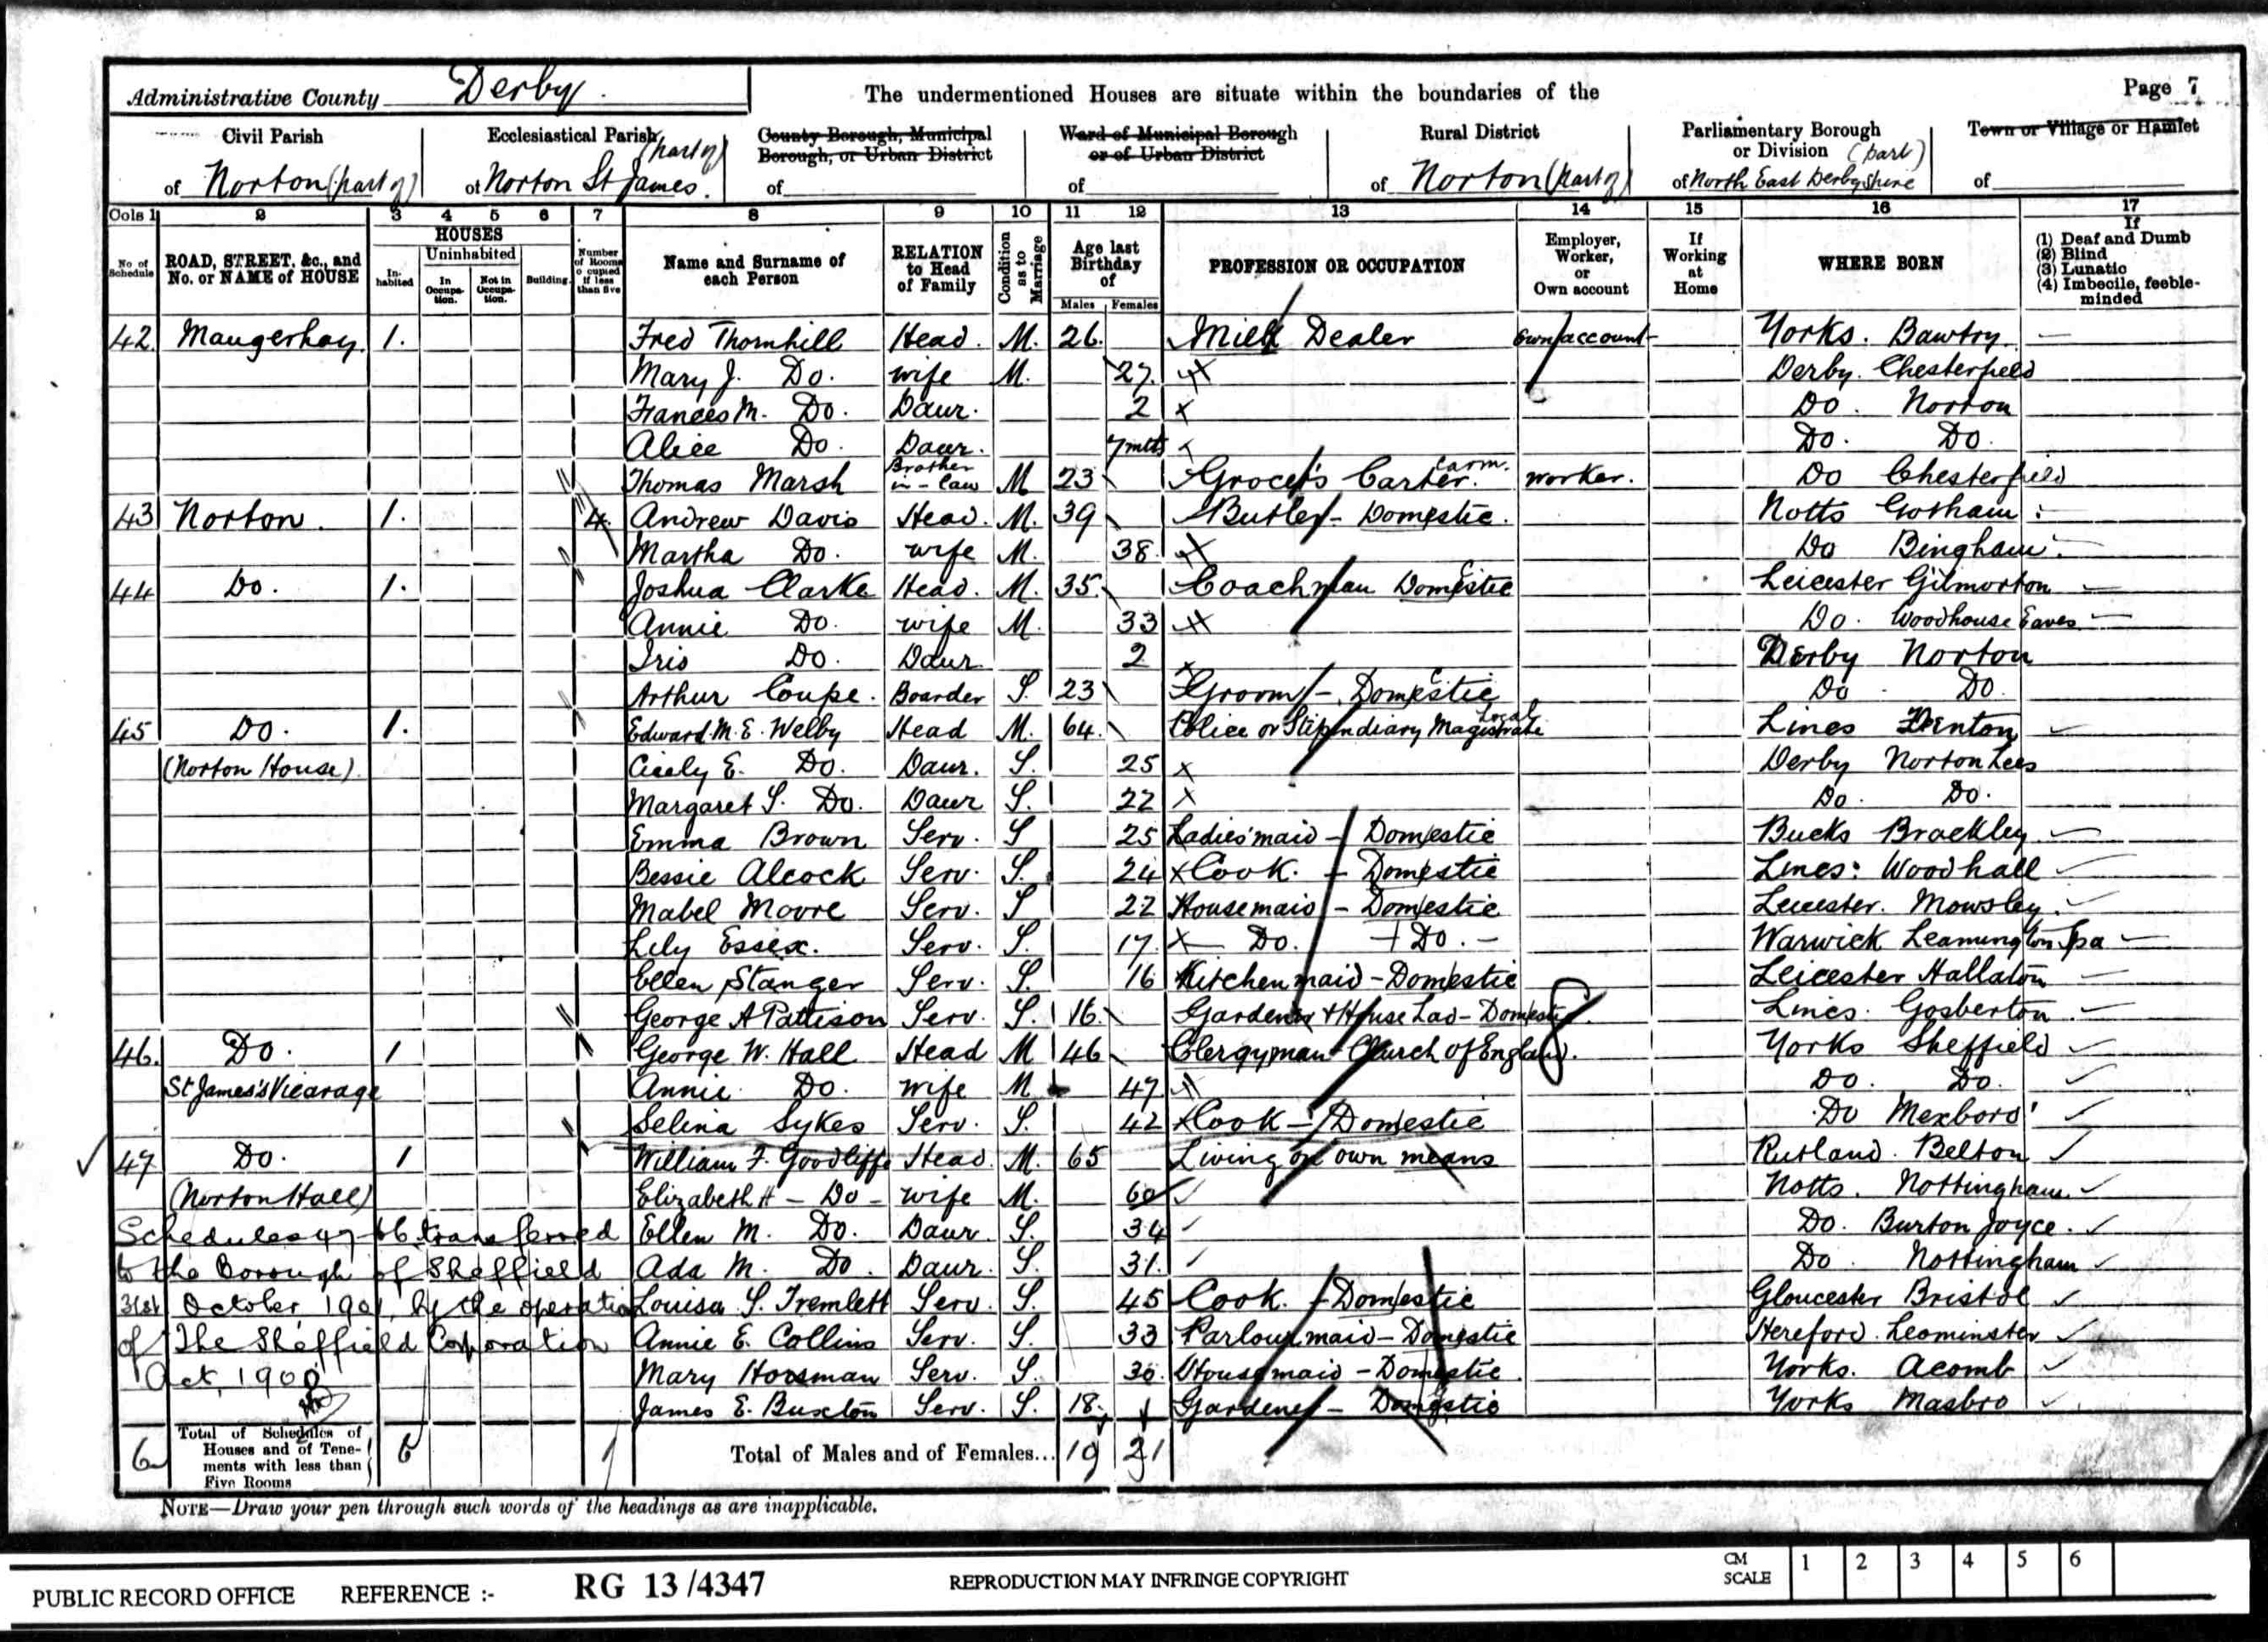 Administrative County Derby. The undermentioned Houses are situate within the boundaries of the Page 7
Civil Parish Ecclesiastical Parish (part of) County Borough, Municipal Borough, or Urban District Ward of Municipal Borough or of Urban District Rural District Parliamentary Borough or Division (part) Town or Village or Hamlet
of Norton (part of) of Norton St James. of of of Norton (part of) of North East Derbyshire of
Cols 1 2 3 4 5 6 7 8 9 10 11 12 13 14 15 16 17
No of Schedule ROAD, STREET, &c., and No. or NAME of HOUSE HOUSES Inhabited Uninhabited In Occupation. Not in Occupation. Building. Number of Rooms occupied if less than five Name and Surname of each Person RELATION to Head of Family Condition as to Marriage Age last Birthday of Males Females PROFESSION OR OCCUPATION Employer, Worker, or Own account If Working at Home WHERE BORN If (1) Deaf and Dumb (2) Blind (3) Lunatic (4) Imbecile, feeble-minded
42. Maugerhay. 1. Fred Thornhill Head. M. 26. Milk Dealer Own account Yorks. Bawtry.
Mary J. Do. wife M. 27. Derby. Chesterfield
Frances M. Do. Daur. 2 Do. Norton
Alice Do. Daur. 7mths Do. Do.
Thomas Marsh Brother in-law M 23 Grocer's Carter. Carm. worker. Do Chesterfield
43 Norton. 1. 4. Andrew Davis Head. M. 39 Butler - Domestic. Notts Gotham
Martha Do. wife M. 38. Do Bingham
44 Do. 1. Joshua Clarke Head. M. 35. Coachman Domestic Leicester Gilmorton
Annie Do. wife M. 33 Do. Woodhouse Eaves
Iris Do. Daur 2 Derby Norton
Arthur Coupe. Boarder S. 23 Groom - Domestic Do. Do.
45 Do. 1. Edward. M. E. Welby Head M. 64. Police or Stipendiary Magistrate Local Lincs Denton
(Norton House). Cicely E. Do. Daur. S. 25 Derby Norton Lees
Margaret S. Do. Daur S. 22 Do. Do.
Emma Brown Serv. S 25 Ladies' maid - Domestic Bucks Brackley
Bessie Alcock Serv. S. 24 Cook. - Domestic Lincs: Woodhall
Mabel Moore Serv. S 22 Housemaid - Domestic Leicester. Mowsley
Lily Essex. Serv. S. 17. Do. Do. Warwick Leamington Spa
Ellen Stanger Serv. S. 16 Kitchen maid - Domestic Leicester Hallaton
George A Pattison Serv. S. 16. Gardener & House Lad - Domestic. Lincs. Gosberton
46. Do. 1 George W. Hall Head M 46 Clergyman Church of England. Yorks Sheffield
St James's Vicarage Annie Do. wife M 47. Do. Do.
Selina Sykes Serv. S. 42 Cook - Domestic Do Mexboro'
47 Do. 1 William F. Goodliffe Head. M. 65 Living on own means Rutland. Belton
(Norton Hall) Elizabeth H - Do - wife M. 60 Notts. Nottingham
Schedules 47- transferred Ellen M. Do. Daur. S. 34 Do. Burton Joyce.
to the Borough of Sheffield Ada M. Do. Daur. S. 31. Do. Nottingham
31st October, 1901, by the operation Louisa S. Tremlett Serv. S. 45 Cook. - Domestic Gloucester Bristol
of The Sheffield Corporation Annie E. Collins Serv. S. 33 Parlour maid - Domestic Hereford. Leominster
Act, 1900 Mary Horsman Serv. S. 30. House maid - Domestic. Yorks. Acomb
James E. Buxton Serv. S. 18. Gardener - Domestic Yorks Masbro
6 Total of Schedules of Houses and of Tenements with less than Five Rooms 6 1 Total of Males and of Females... 19 21
NOTE—Draw your pen through such words of the headings as are inapplicable.
PUBLIC RECORD OFFICE REFERENCE :- RG 13/4347 REPRODUCTION MAY INFRINGE COPYRIGHT CM SCALE 1 2 3 4 5 6